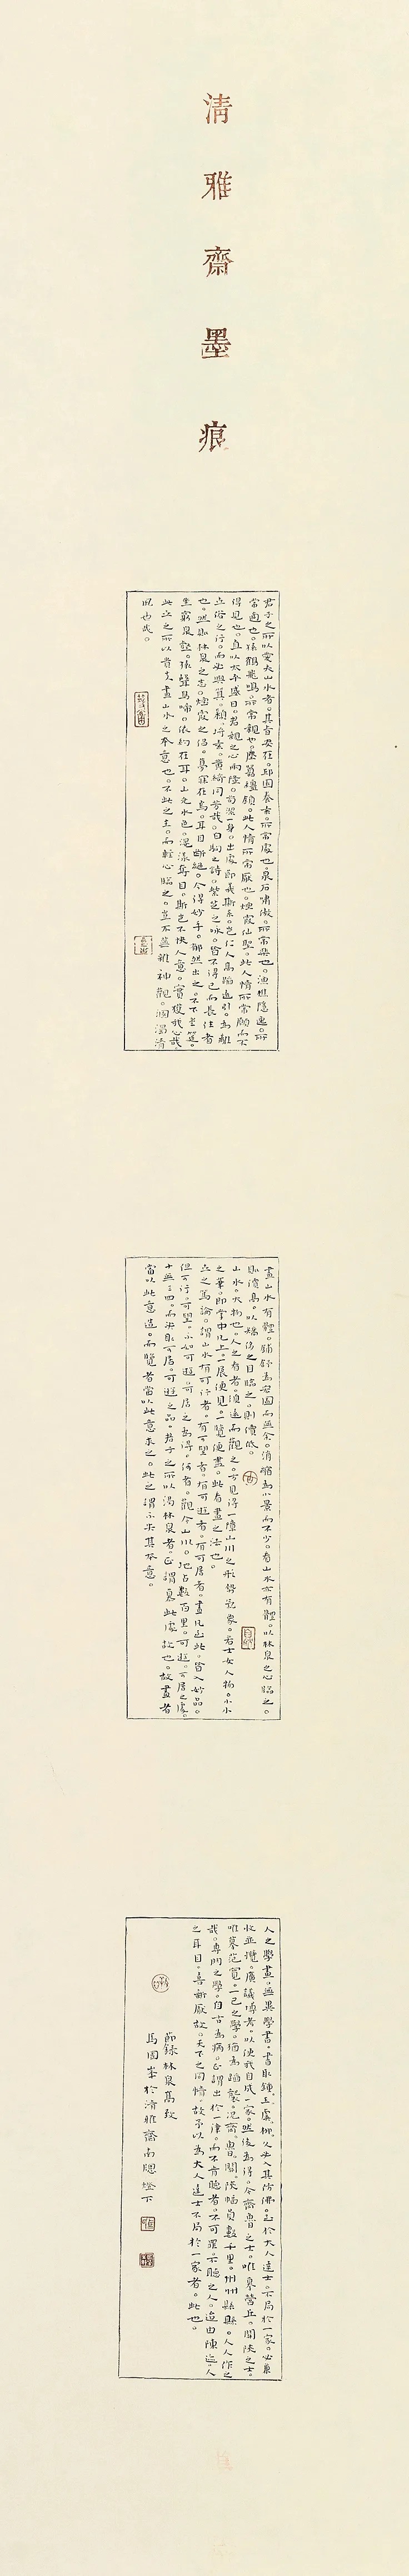 清雅齋墨痕
君子之所以愛夫山水者。其旨安在。邱園養素。所常處也。泉石嘯傲。所常樂也。漁樵隱逸。所
常適也。猿鶴飛鳴。所常親也。塵囂韁鎖。此人情所常厭也。煙霞仙聖。此人情所常願而不
得見也。直以太平盛日。君親之心兩隆。苟潔一身。出處節義斯系。豈仁人高蹈遠引。為離
立俗之行。而必與箕潁埒素。黃綺同芳哉。白駒之詩。紫芝之詠。皆不得已而長往者
也。然則林泉之志。煙霞之侶。夢寐在焉。耳目斷絕。今得妙手。鬱然出之。不下堂筵。
坐窮泉壑。猿聲鳥啼。依約在耳。山光水色。滉漾奪目。斯豈不快人意。實獲我心哉。
此世之所以貴夫畫山水之本意也。不此之主。而輕心臨之。豈不蕪雜神觀。溷濁清
風也哉。
畫山水有體。鋪舒為宏圖而無餘。消縮為小景而不少。看山水亦有體。以林泉之心臨之。
則價高。以驕侈之目臨之。則價低。
山水。大物也。人之看者。須遠而觀之。方見得一障山川之形勢氣象。若士女人物。小小
之筆。即掌中几上。一展便見。一覽便盡。此看畫之法也。
世之篤論。謂山水有可行者。有可望者。有可遊者。有可居者。畫凡至此。皆入妙品。
但可行。可望。不如可遊。可居之為得。何者。觀今山川。地占數百里。可遊。可居之處。
十無三四。而必取可居。可遊之品。君子之所以渴林泉者。正謂慕此處故也。故畫者
當以此意造。而覽者當以此意求之。此之謂不失其本意。
人之學畫。無異學書。今取鍾王虞柳。久必入其彷彿。至於大人達士。不局於一家。必兼
收並攬。廣議博考。以使我自成一家。然後為得。今齊魯之士。唯摹營丘。關陝之士。
唯摹范寬。一己之學。猶為蹈襲。況齊魯。關陝幅員數千里。州州縣縣。人人作之
哉。專門之學。自古為病。正謂出於一律。而不肯聽者。不可罪不聽之人。迨由陳迹。人
之耳目。喜新厭故。天下之同情。故予以為大人達士不局於一家者。此也。
節錄林泉高致
馬國峯於清雅齋南窗燈下